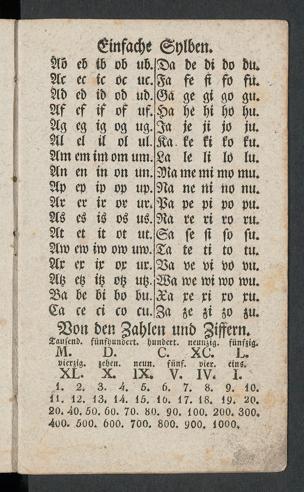 Einfache Sylben.
Ab eb ib ob ub. Da de di do du.
Ac ec ic oc uc. Fa fe fi fo fu.
Ad ed id od ud. Ga ge gi go gu.
Af ef if of uf. Ha he hi ho hu.
Ag eg ig og ug. Ja je ji jo ju.
Al el il ol ul. Ka ke ki ko ku.
Am em im om um. La le li lo lu.
An en in on un. Ma me mi mo mu.
Ap ep ip op up. Na ne ni no nu.
Ar er ir or ur. Pa pe pi po pu.
As es is os us. Ra re ri ro ru.
At et it ot ut. Sa se si so su.
Aw ew iw ow uw. Ta te ti to tu.
Ax ex ix ox ux. Va ve vi vo vu.
Atz etz itz otz utz. Wa we wi wo wu.
Ba be bi bo bu. Xa xe xi xo xu.
Ca ce ci co cu. Za ze zi zo zu.
Von den Zahlen und Ziffern.
Tausend. fünfhundert. hundert. neunzig. fünfzig.
M. D. C. XC. L.
vierzig. zehen. neun. fünf. vier. eins.
XL. X. IX. V. IV. I.
1. 2. 3. 4. 5. 6. 7. 8. 9. 10.
11. 12. 13. 14. 15. 16. 17. 18. 19. 20.
20. 40. 50. 60. 70. 80. 90. 100. 200. 300.
400. 500. 600. 700. 800. 900. 1000.